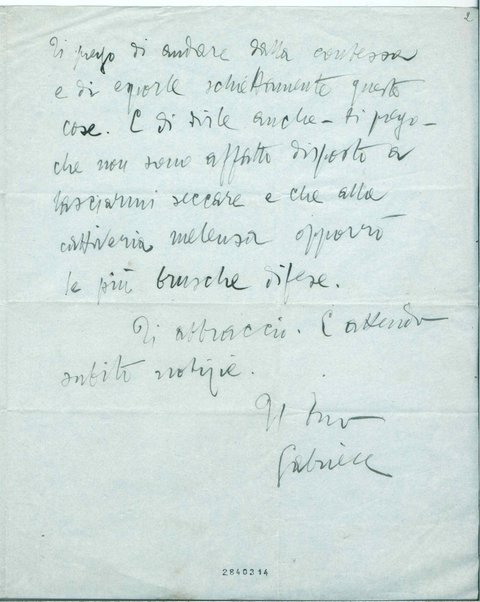 2
Ti prego di andare dalla contessa
e di esporle schiettamente queste
cose. E di dirle anche - ti prego -
che non sono affatto disposto a
lasciarmi seccare e che alla
cattiveria melensa opporrò
le più brusche difese.
Ti abbraccio. E attendo
subito notizie.
Il tuo
Gabriele
2840314